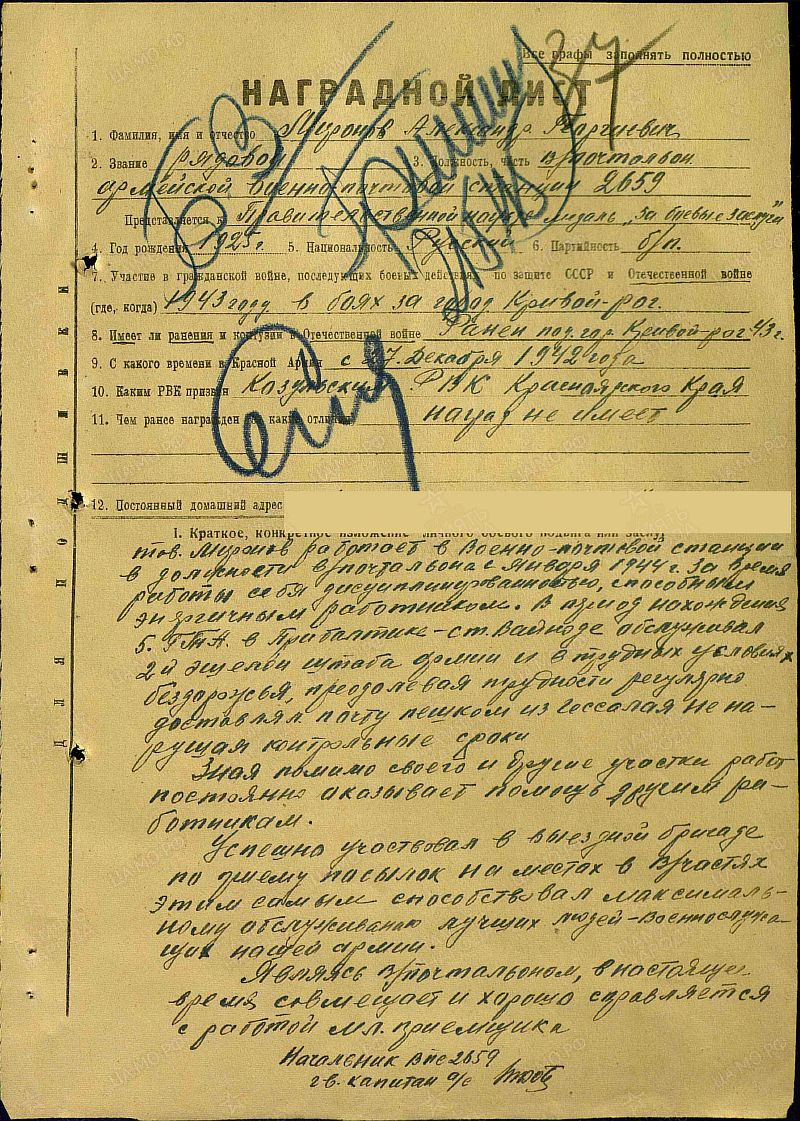 Все графы заполнять полностью
37
НАГРАДНОЙ ЛИСТ
1. Фамилия, имя и отчество Миронов Александр Георгиевич
2. Звание рядовой 3. Должность, часть в/почтальон
армейской военно-почтовой станции 2659
Представляется к Правительственной награде медаль „За боевые заслуги"
4. Год рождения 1925 г. 5. Национальность Русский 6. Партийность б/п.
7. Участие в гражданской войне, последующих боевых действиях по защите СССР и Отечественной войне
(где, когда) 1943 году в боях за город Кривой-рог.
8. Имеет ли ранения и контузии в Отечественной войне Ранен под гор. Кривой-рог 43 г.
9. С какого времени в Красной Армии с 27 Декабря 1942 года
10. Каким РВК призван Козульским РВК Красноярского Края
11. Чем ранее награжден за какие отличия наград не имеет
12. Постоянный домашний адрес
I. Краткое, конкретное изложение личного боевого подвига или заслуг
тов. Миронов работает в Военно-почтовой станции
в должности в/почтальона с января 1944 г. За время
работы себя дисциплинированностью, способным
энергичным работником. В период нахождения
5. ГТА. в Прибалтике – ст. Вайноде обслуживал
2й эшелон штаба армии и в трудных условиях
бездорожья, преодолевая трудности регулярно
доставлял почту пешком из не на-
рушая контрольные сроки
Зная помимо своего и другие участки работ
постоянно оказывает помощь другим ра-
ботникам.
Успешно участвовал в выездной бригаде
по приему посылок на местах в в/частях
этим самым способствовал максималь-
ному обслуживанию лучших людей – военнослужа-
щих нашей армии.
Являясь в/почтальоном, в настоящее
время совмещает и хорошо справляется
с работой мл. приемщика
Начальник ВПС 2659
гв. капитан а/с
Для подшивки